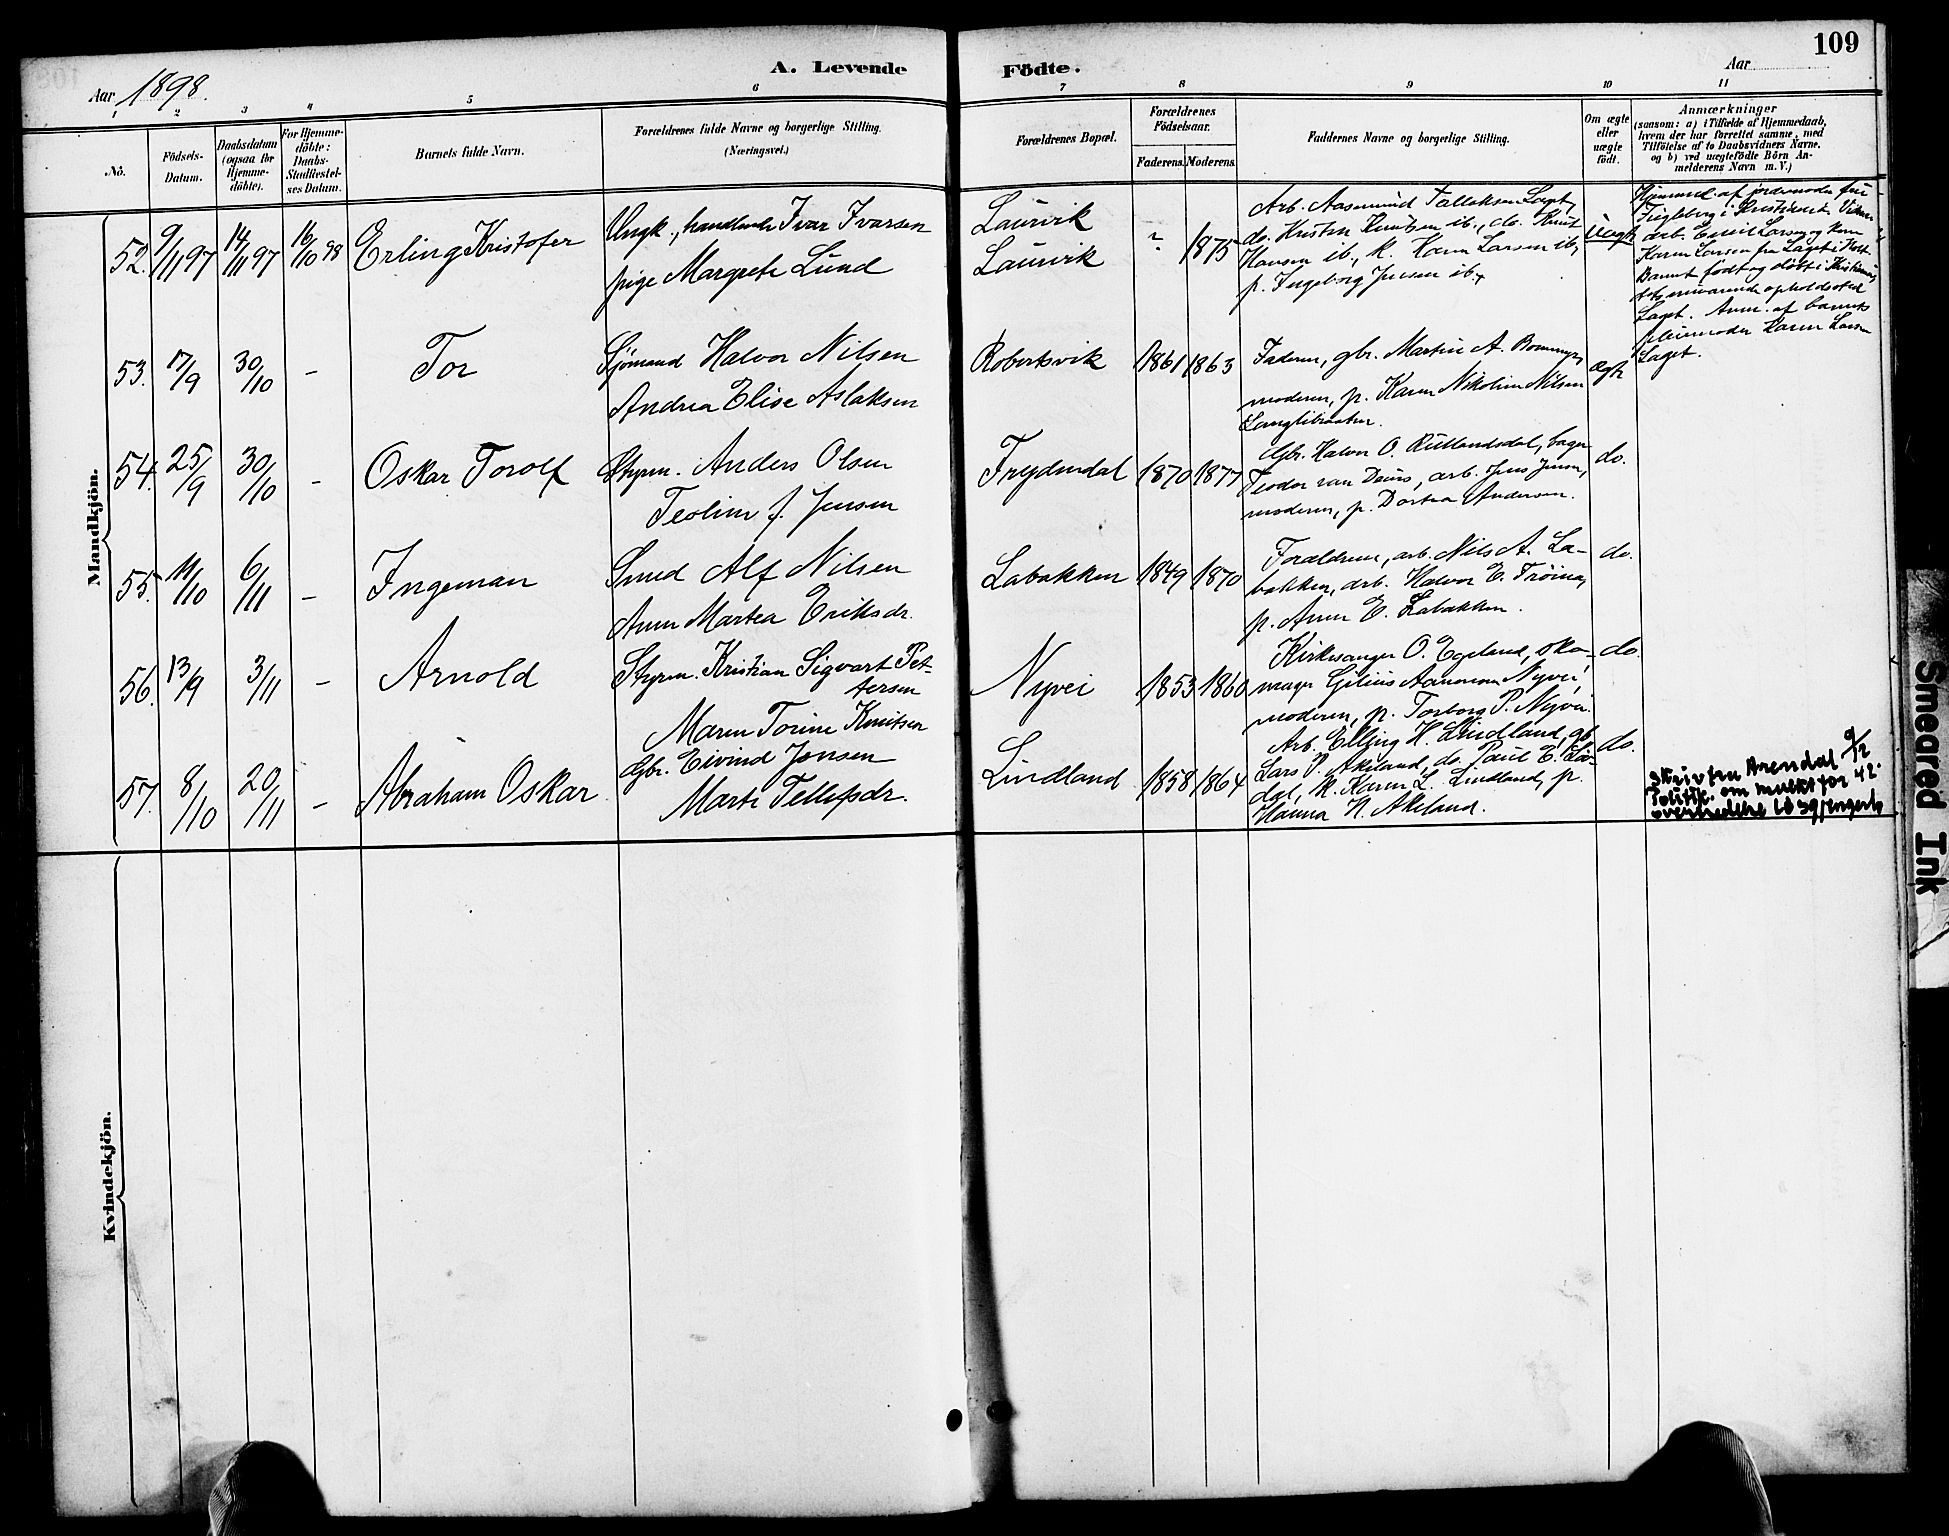 109
A. Levende Födte.
Aar 1898.
Aar
1 2 3 4 5 6 7 8 9 10 11
No.
Födsels-
Datum.
Daabsdatum
(ogsaa for
Hjemme-
döbte).
For Hjemme-
döbte:
Daabs-
Stadfæstel-
ses Datum.
Barnets fulde Navn.
Forældrenes fulde Navne og borgerlige Stilling.
(Næringsvei.)
Forældrenes Bopæl.
Forældrenes
Födselsaar.
Faderens. Moderens.
Faddernes Navne og borgerlige Stilling.
Om ægte
eller
uægte
födt.
Anmærkninger
(saasom: a) i Tilfælde af Hjemmedaab,
hvem der har forrettet samme, med
Tilföielse af to Daabsvidners Navne.
og b) ved uægtefödte Börn An-
melderens Navn m. V.)
Mandkjön.
52. 9/11 97 14/11 97 16/10 98
Erling Kristofer
Ungk., handlende Ivar Ivarsen
pige Margrete Lund
Laurvik
Laurvik
? 1875
Arb. Aasmund Tallaksen Laget,
do. Kristen Knutsen ib., do. Knut
Hansen ib., k. Karen Larsen ib,
p. Ingeborg Jensen ib.
uægte
Hjemmed. af jordmoder
i Kristiania
arb. Emil Larsen og kone
Karen Larsen fra Laget i Holt
Barnet født og døbt i Kristiania,
nuværende opholdssted
Laget. Anm. af barnets
pleiemoder Karen Larsen
Laget.
53. 17/9 30/10 –
Tor
Sjømand Halvor Nilsen
Andrea Elise Aslaksen
Robertsvik
1861 1863
Faderen, gbr. Martin A.
moderen, p. Karen Nikoline Nilsen
ægte
54. 25/9 30/10 –
Oskar Torolf
Styrm. Anders Olsen
Teoline f. Jensen
Frydendal
1870 1877
Gbr. Halvor O. Rutlandsdal, bager
Teodor van Deurs, arb. Jens Jensen,
moderen, p. Dortea Andersen.
do.
55. 11/10 6/11 –
Ingeman
Smed Alf Nilsen
Anne Martea Eriksdr.
Labakken
1849 1870
Forældrene, arb. Nils A. La-
bakken, arb. Halvor E. Trøina,
p. Anne E. Labakken.
do.
56. 13/9 3/11 –
Arnold
Styrm. Kristian Sigvart Pet-
tersen
Maren Torine Knutsen
Nyvei
1853 1860
Kirkesanger O. Egeland, sko-
mager Gilius Aanonsen Nyvei,
moderen, p. Torborg P. Nyvei.
do.
57. 8/10 20/11 –
Abraham Oskar
Gbr. Eivind Jensen
Marte Tellefsdr.
Lindland
1858 1864
Arb. Elling H. Lindland, gb.
Lars P. Akeland, do. Paul E. Lø-
dal, k. Karen L. Lindland, p.
Hanna N. Akeland.
do.
skriv fra Arendal 9/2
Politik. om mulkt for 42.
overtrædelse
Kvindekjön.
Smeared Ink